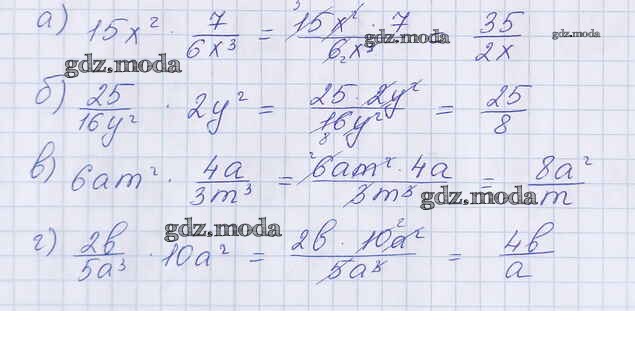 а) 15x² · 7/6x³ = 15x² · 7/6x³ 35/2x
gdz.moda gdz.moda gdz.moda
б) 25/16y² · 2y² = 25 · 2y²/16y² = 25/8
в) 6am² · 4a/3m³ = 6am² · 4a/3m³ = 8a²/m
gdz.moda gdz.moda
г) 2b/5a³ · 10a² = 2b · 10a²/5a³ = 4b/a